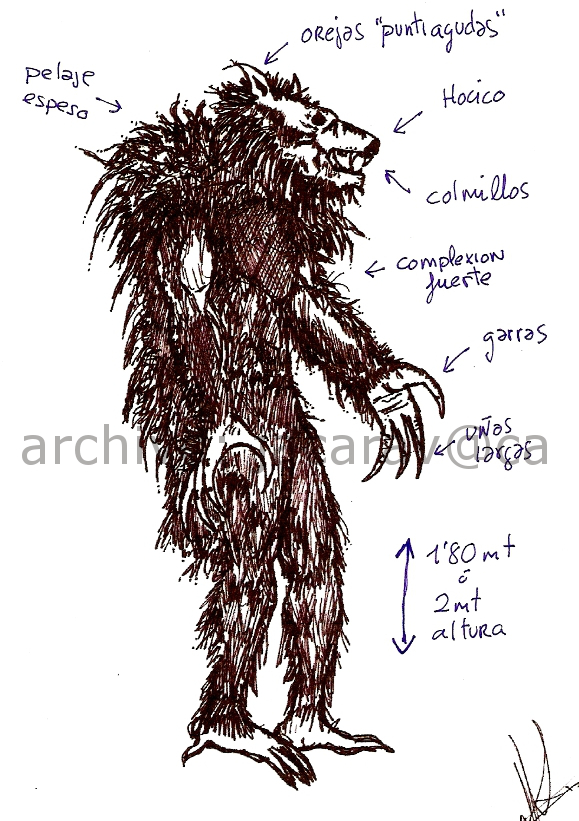 orejas "puntiagudas"
pelaje
espeso
Hocico
colmillos
complexion
fuerte
garras
uñas
largas
1'80 mt
ó
2 mt
altura